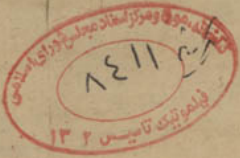 کتابخانه، موزه و مرکز اسناد مجلس شورای اسلامی
۸۴۱۱
فیلموتیک تاسیس ۱۳۰۲